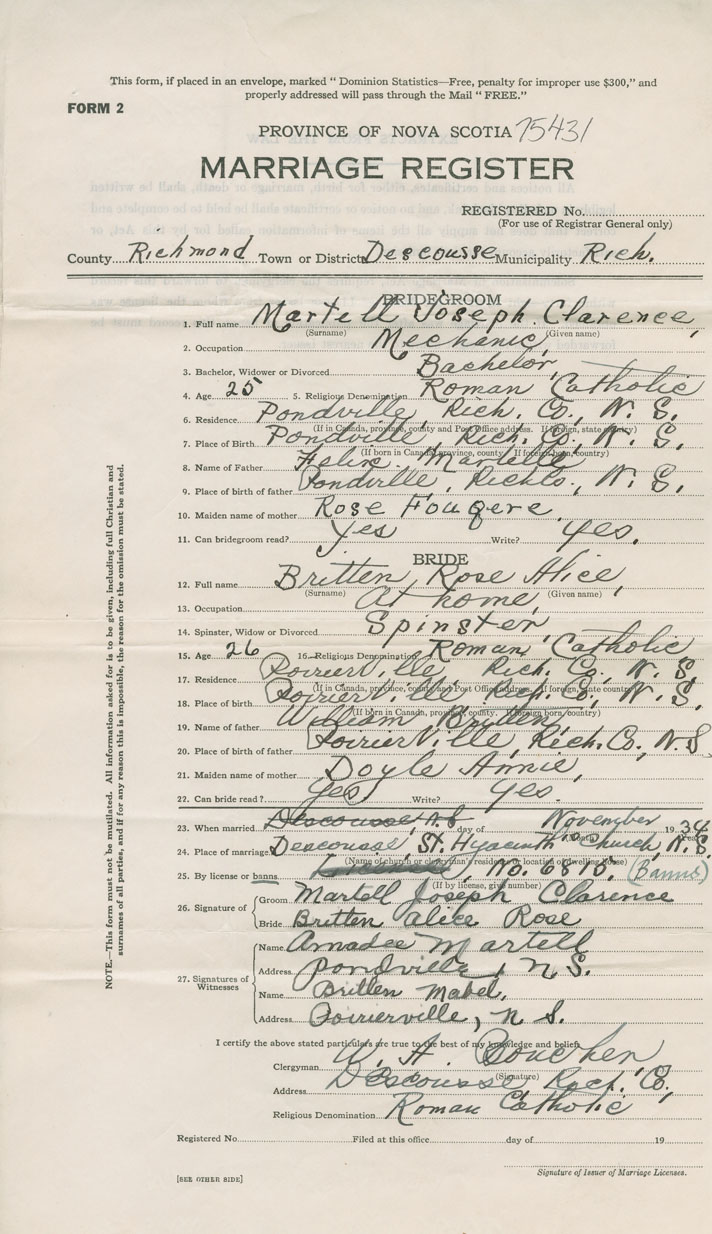 This form, if placed in an envelope, marked " Dominion Statistics—Free, penalty for improper use $300," and
properly addressed will pass through the Mail " FREE."
FORM 2
PROVINCE OF NOVA SCOTIA 75431
MARRIAGE REGISTER
REGISTERED No.
(For use of Registrar General only)
County Richmond Town or District Descousse Municipality Rich.
BRIDEGROOM
1. Full name Martell Joseph Clarence,
(Surname) (Given name)
2. Occupation Mechanic,
3. Bachelor, Widower or Divorced Bachelor,
4. Age 25 5. Religious Denomination Roman Catholic
6. Residence Pondville, Rich. Co., N. S.
(If in Canada, province, county and Post Office address. If foreign, state country)
7. Place of Birth Pondville, Rich. Co, N. S,
(If born in Canada, province, county. If foreign born, country)
8. Name of Father Martell
9. Place of birth of father Pondville, Rich Co., N. S,
10. Maiden name of mother Rose Fougere
11. Can bridegroom read? yes Write? yes.
BRIDE
12. Full name Britten, Rose Alice,
(Surname) (Given name)
13. Occupation At home,
14. Spinster, Widow or Divorced Spinster,
15. Age 26 16. Religious Denomination Roman Catholic
17. Residence Poirierville, Rich. Co., N. S,
(If in Canada, province, county and Post Office address. If foreign, state country)
18. Place of birth Poirierville, Rich. Co., N. S,
(If born in Canada, province, county. If foreign born, country)
19. Name of father William Britten,
20. Place of birth of father Poirierville, Rich. Co., N. S
21. Maiden name of mother Doyle Annie,
22. Can bride read? yes Write? yes.
23. When married day of November 1934
24. Place of marriage Descousse, St. Hyacinth Church, N. S.
(Name of church or clergyman's residence or location of dwelling house)
25. By license or banns No. 6810. (Banns)
(If by license, give number)
26. Signature of Groom Martell Joseph Clarence
Bride Britten Alice Rose
27. Signatures of Witnesses Name Amadee Martell
Address Pondville, N. S.
Name Britten Mabel,
Address Poirierville, N. S.
I certify the above stated particulars are true to the best of my knowledge and belief.
Clergyman Boucher
(Signature)
Address Descousse, Rich. Co,
Religious Denomination Roman Catholic
Registered No. Filed at this office day of 19
Signature of Issuer of Marriage Licenses.
[SEE OTHER SIDE]
NOTE.—This form must not be mutilated. All information asked for is to be given, including full Christian and
surnames of all parties, and if for any reason this is impossible, the reason for the omission must be stated.